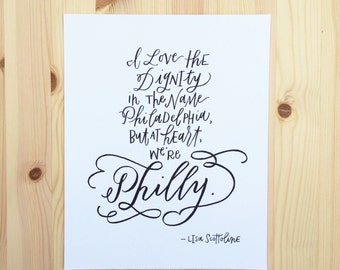 I Love the
Dignity
in the Name
Philadelphia,
but at heart,
we're
Philly.
— Lisa Scottoline